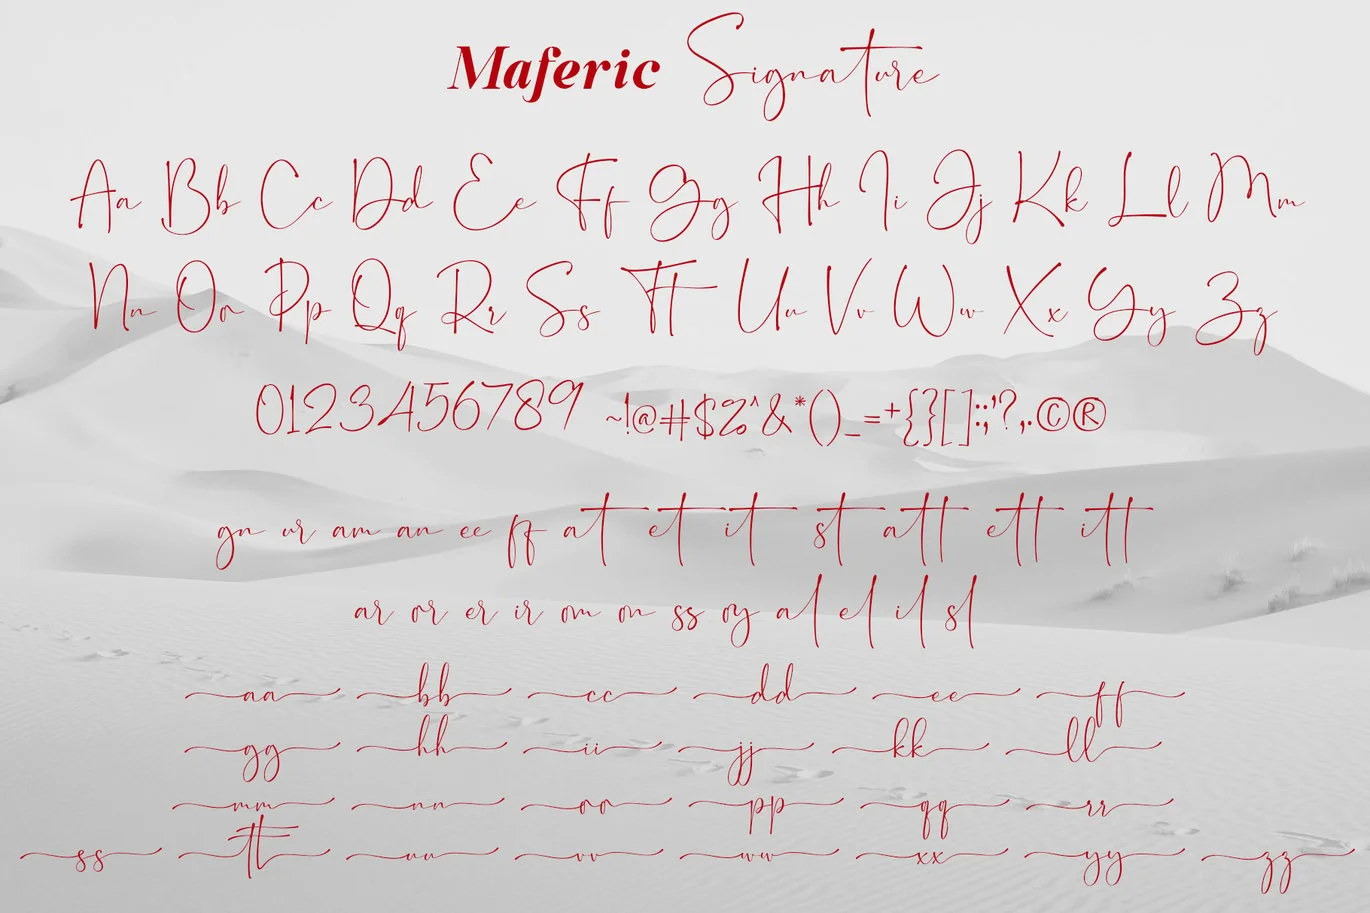 Maferic Signature
Aa Bb Cc Dd Ee Ff Gg Hh Ii Jj Kk Ll Mm
Nn Oo Pp Qq Rr Ss Tt Uu Vv Ww Xx Yy Zz
0123456789 ~!@#$%^&*()_=+{}[]:;'?,.©®
gn ur am an ee ff at et it st att ett itt
ar or er ir om on ss oy al el il sl
aa bb cc dd ee ff
gg hh ii jj kk ll
mm nn oo pp qq rr
ss tt uu vv ww xx yy zz